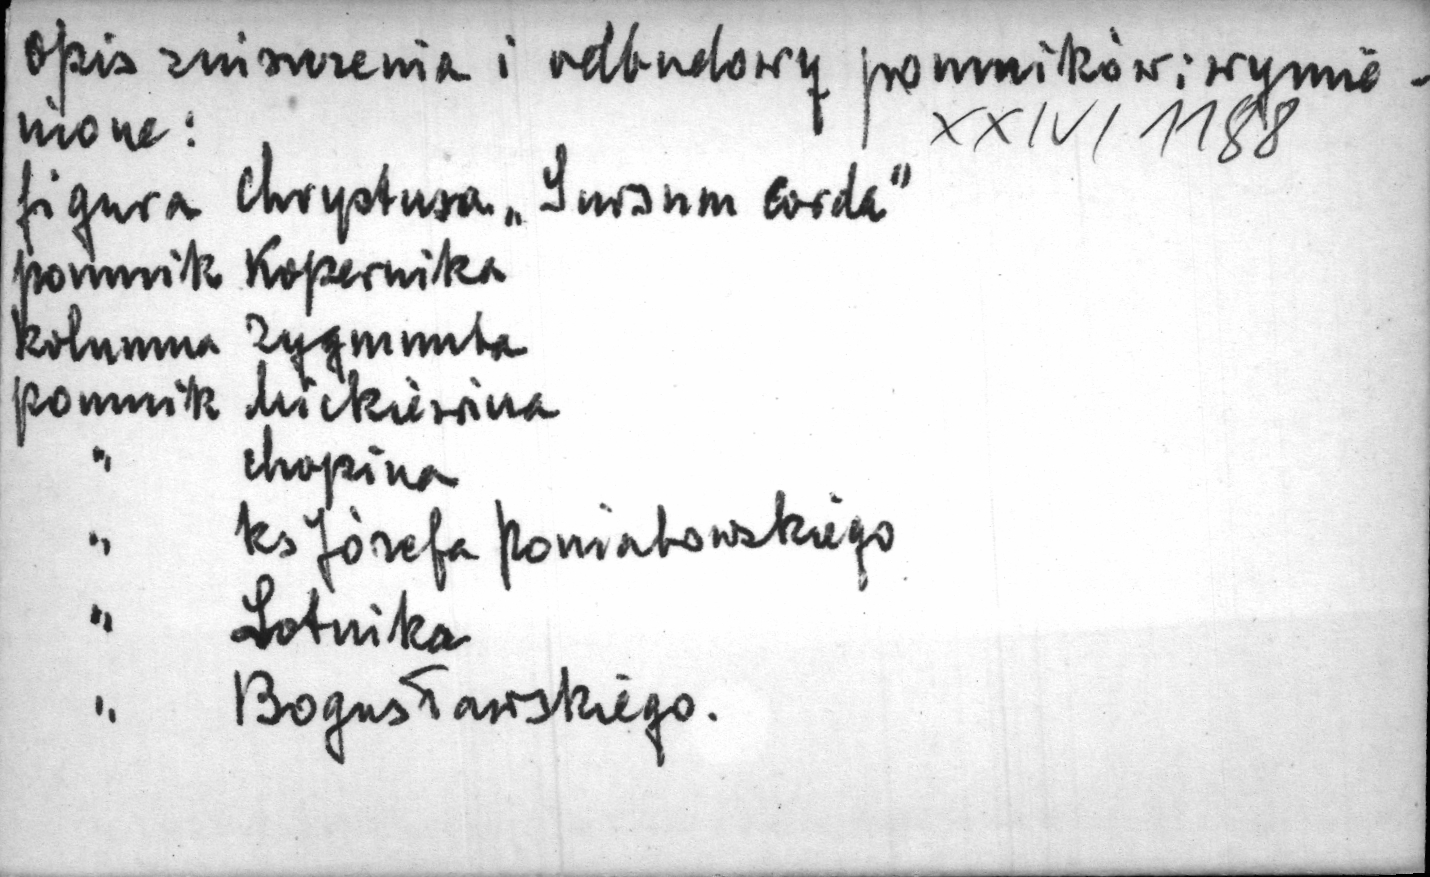 Opis zniszczenia i odbudowy pomników; wymie-
nione:
XXIV/1188
figura Chrystusa „Sursum Corda"
pomnik Kopernika
Kolumna Zygmunta
pomnik Mickiewicza
" Chopina
" ks Józefa Poniatowskiego
" Lotnika
" Bogusławskiego.